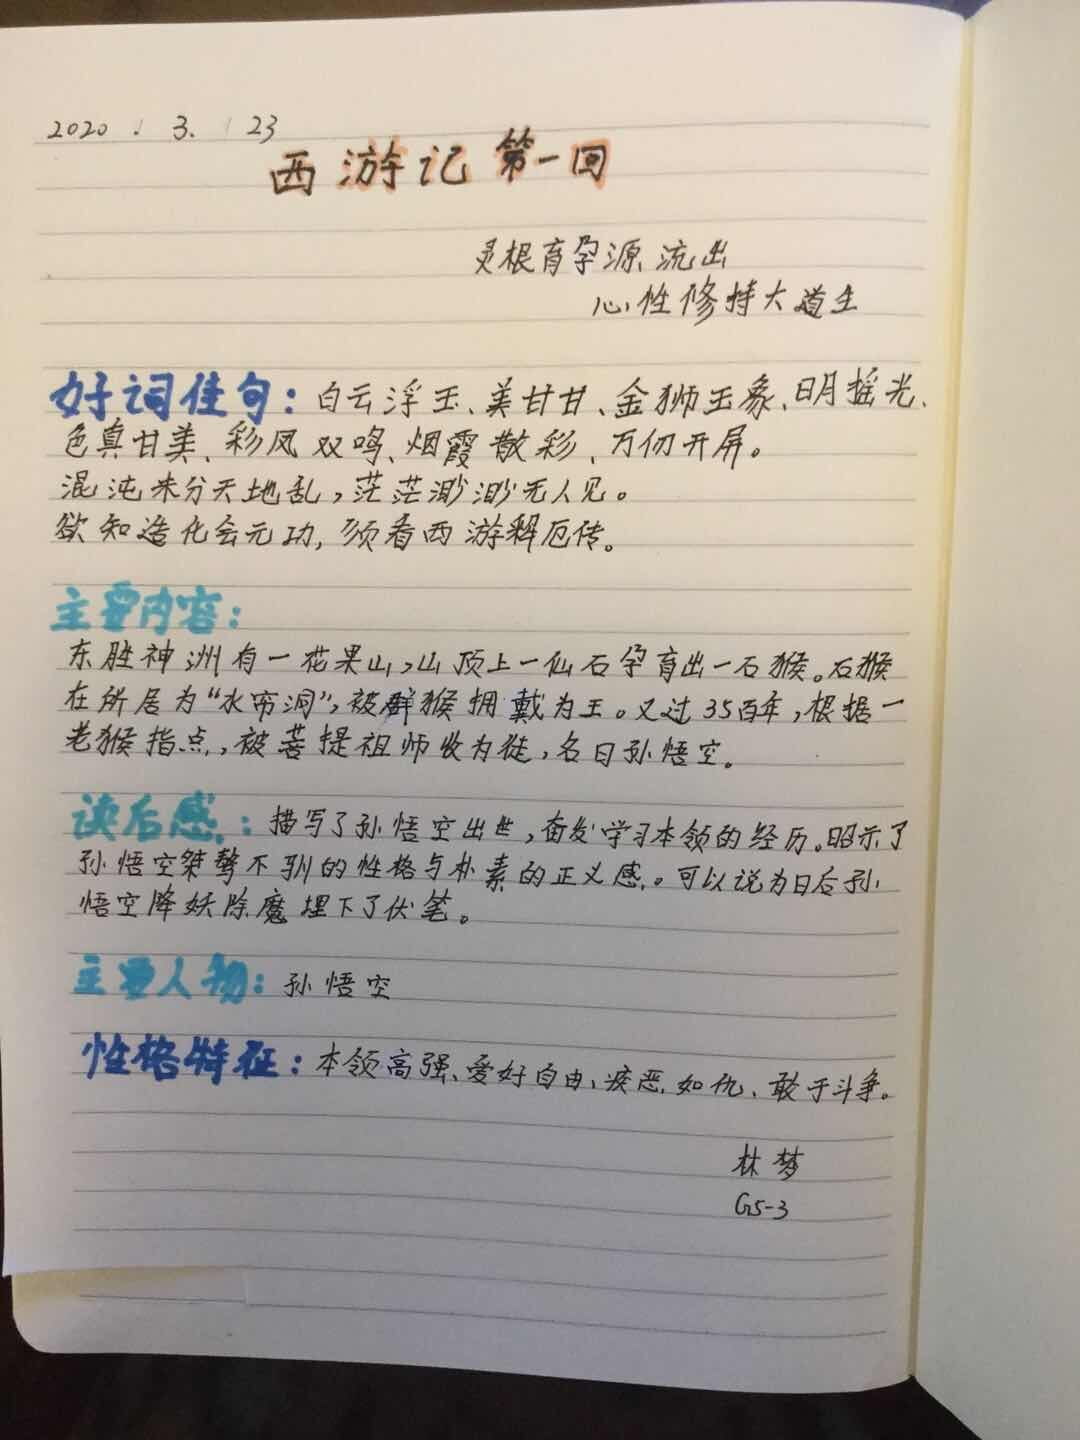 2020.3.23
西游记第一回
灵根育孕源流出
心性修持大道生
好词佳句：白云浮玉、美甘甘、金狮玉象、日月摇光、
色真甘美、彩凤双鸣、烟霞散彩、万仞开屏。
混沌未分天地乱，茫茫渺渺无人见。
欲知造化会元功，须看西游释厄传。
主要内容：
东胜神洲有一花果山，山顶上一仙石孕育出一石猴。石猴
在所居为“水帘洞”，被群猴拥戴为王。又过35百年，根据一
老猴指点，被菩提祖师收为徒，名曰孙悟空。
读后感：描写了孙悟空出世，奋发学习本领的经历。昭示了
孙悟空桀骜不驯的性格与朴素的正义感。可以说为日后孙
悟空降妖除魔埋下了伏笔。
主要人物：孙悟空
性格特征：本领高强、爱好自由、疾恶如仇、敢于斗争。
林梦
G5-3